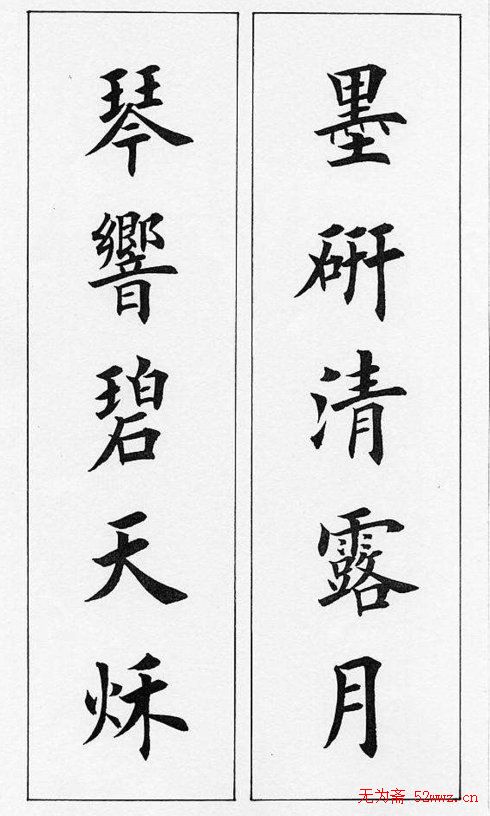 墨研清露月
琴響碧天秌
无为斋 52wwz.cn